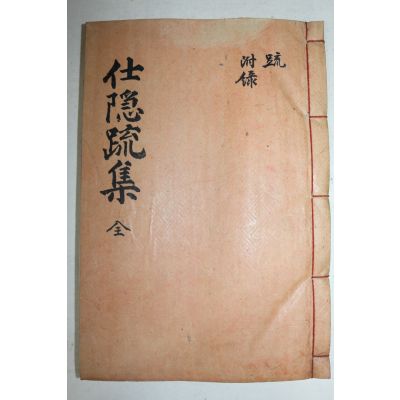 疏
附錄
仕隱疏集 全